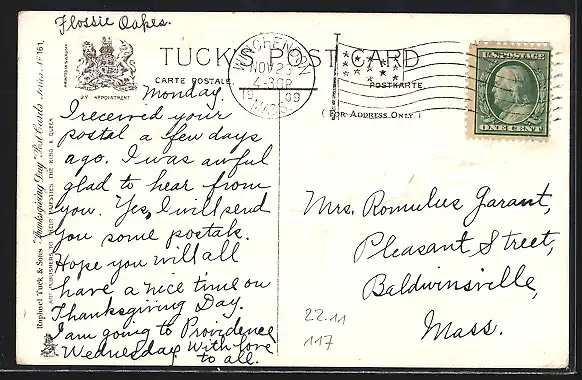 Flossie Oakes.
TUCK'S POST CARD
CARTE POSTALE.
POSTKARTE.
(FOR ADDRESS ONLY.)
BY APPOINTMENT
WINCHENDON
NOV 23
2-30P
1909
MASS.
U.S. POSTAGE
ONE CENT
Monday.
I received your
postal a few days
ago. I was awful
glad to hear from
you. Yes, I will send
you some postals.
Hope you will all
have a nice time on
Thanksgiving Day.
I am going to Providence
Wednesday with love
to all.
Mrs. Romulus Garant,
Pleasant Street,
Baldwinsville,
Mass.
22.11
117
Raphael Tuck & Sons' "Thanksgiving Day" Post Cards Series No 161.
ART PUBLISHERS TO THEIR MAJESTIES THE KING & QUEEN